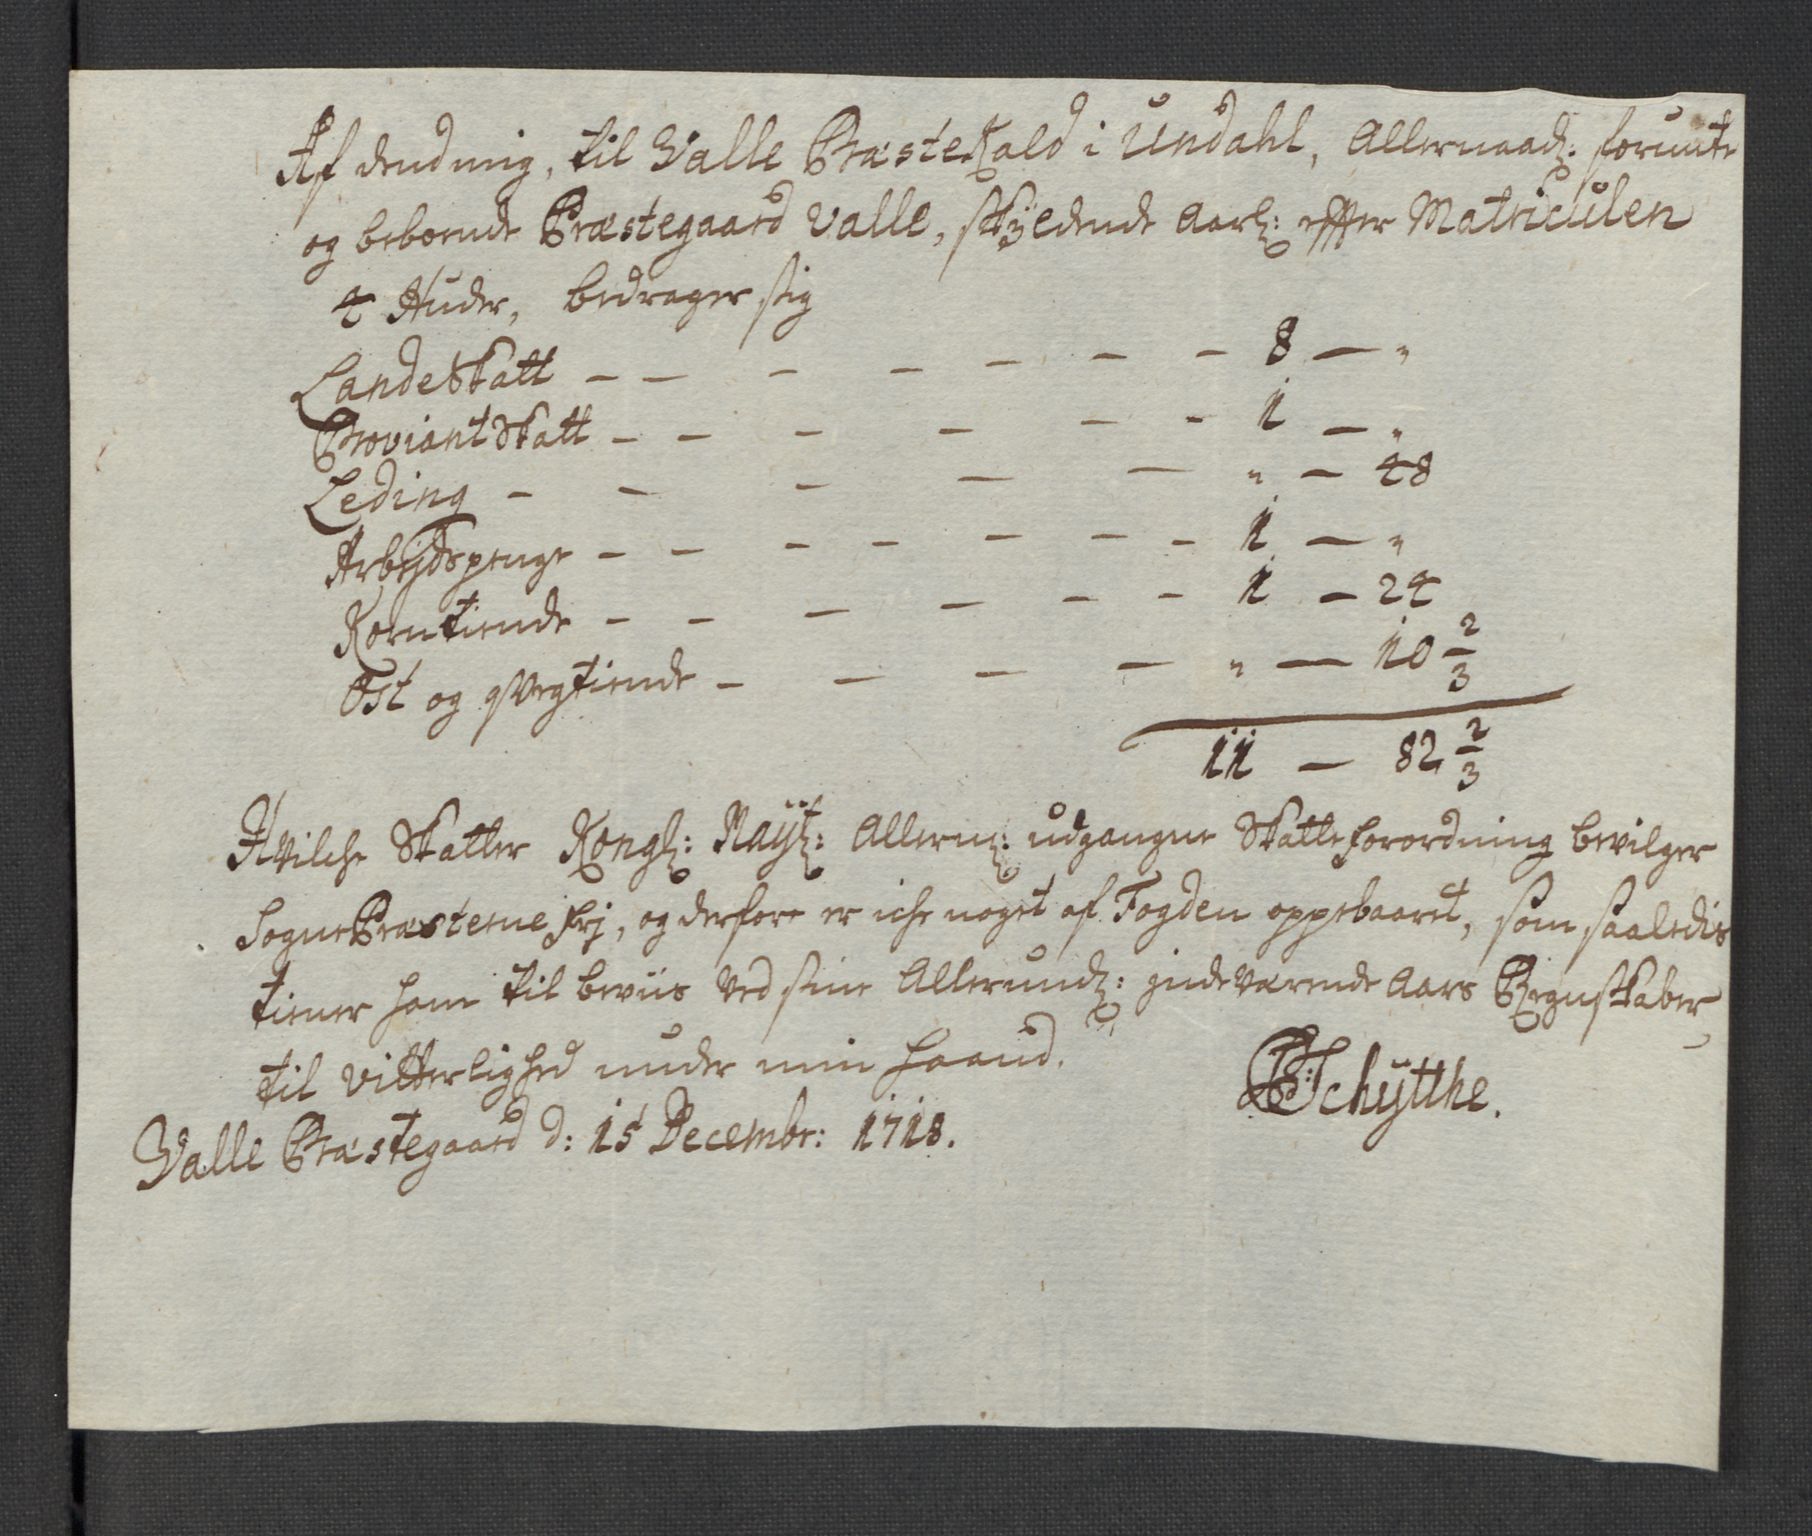 Af dend mig, til Valle Præste Kald i Undahl, Allernaadl: forunte
og beboende Præstegaard Valle, skÿldende Aarl: effter Matriculen
4 Huder, bedrager sig
LandeSkatt – – – – – – – 8 – "
ProviantSkatt – – – – – – 1 – "
Leding – – – – – " – 48
Arbejdspenge – – – – – – – 1 – "
Korn tiende – – – – – – 1 – 24
Ost og qvegtiende – – – – " – 10 2/3
11 – 82 2/3
Hvilche Skatter Kongl: Maÿt: Allern: udgangne Skatte forordning bevilger
Sogne Præsterne frj, og derfore er iche noget af Fogden oppebaaret, som saaledis
tiener ham til beviis ved sine Allerund: indeværende Aars Regnskaber
til vitterlighed under min Haand.
Schÿtthe.
Valle Præstegaard d: 15 Decembr: 1718.